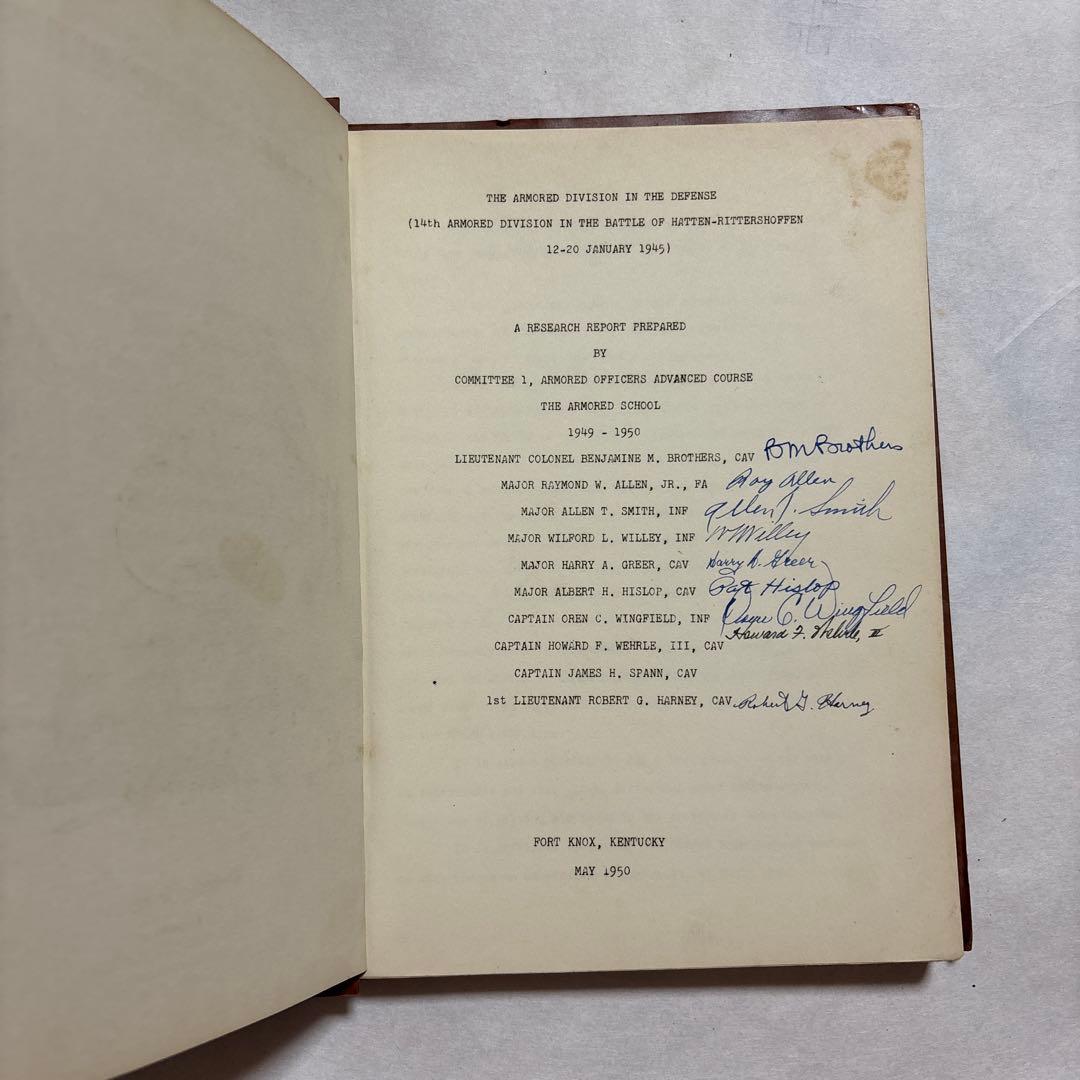 THE ARMORED DIVISION IN THE DEFENSE
(14th ARMORED DIVISION IN THE BATTLE OF HATTEN-RITTERSHOFFEN
12-20 JANUARY 1945)
A RESEARCH REPORT PREPARED
BY
COMMITTEE 1, ARMORED OFFICERS ADVANCED COURSE
THE ARMORED SCHOOL
1949 - 1950
LIEUTENANT COLONEL BENJAMINE M. BROTHERS, CAV BM Brothers
MAJOR RAYMOND W. ALLEN, JR., FA Ray Allen
MAJOR ALLEN T. SMITH, INF Allen T. Smith
MAJOR WILFORD L. WILLEY, INF W Willey
MAJOR HARRY A. GREER, CAV Harry A. Greer
MAJOR ALBERT H. HISLOP, CAV Hislop
CAPTAIN OREN C. WINGFIELD, INF C. Wingfield
CAPTAIN HOWARD F. WEHRLE, III, CAV Howard F. Wehrle, III
CAPTAIN JAMES H. SPANN, CAV
1st LIEUTENANT ROBERT G. HARNEY, CAV. Robert G. Harney
FORT KNOX, KENTUCKY
MAY 1950